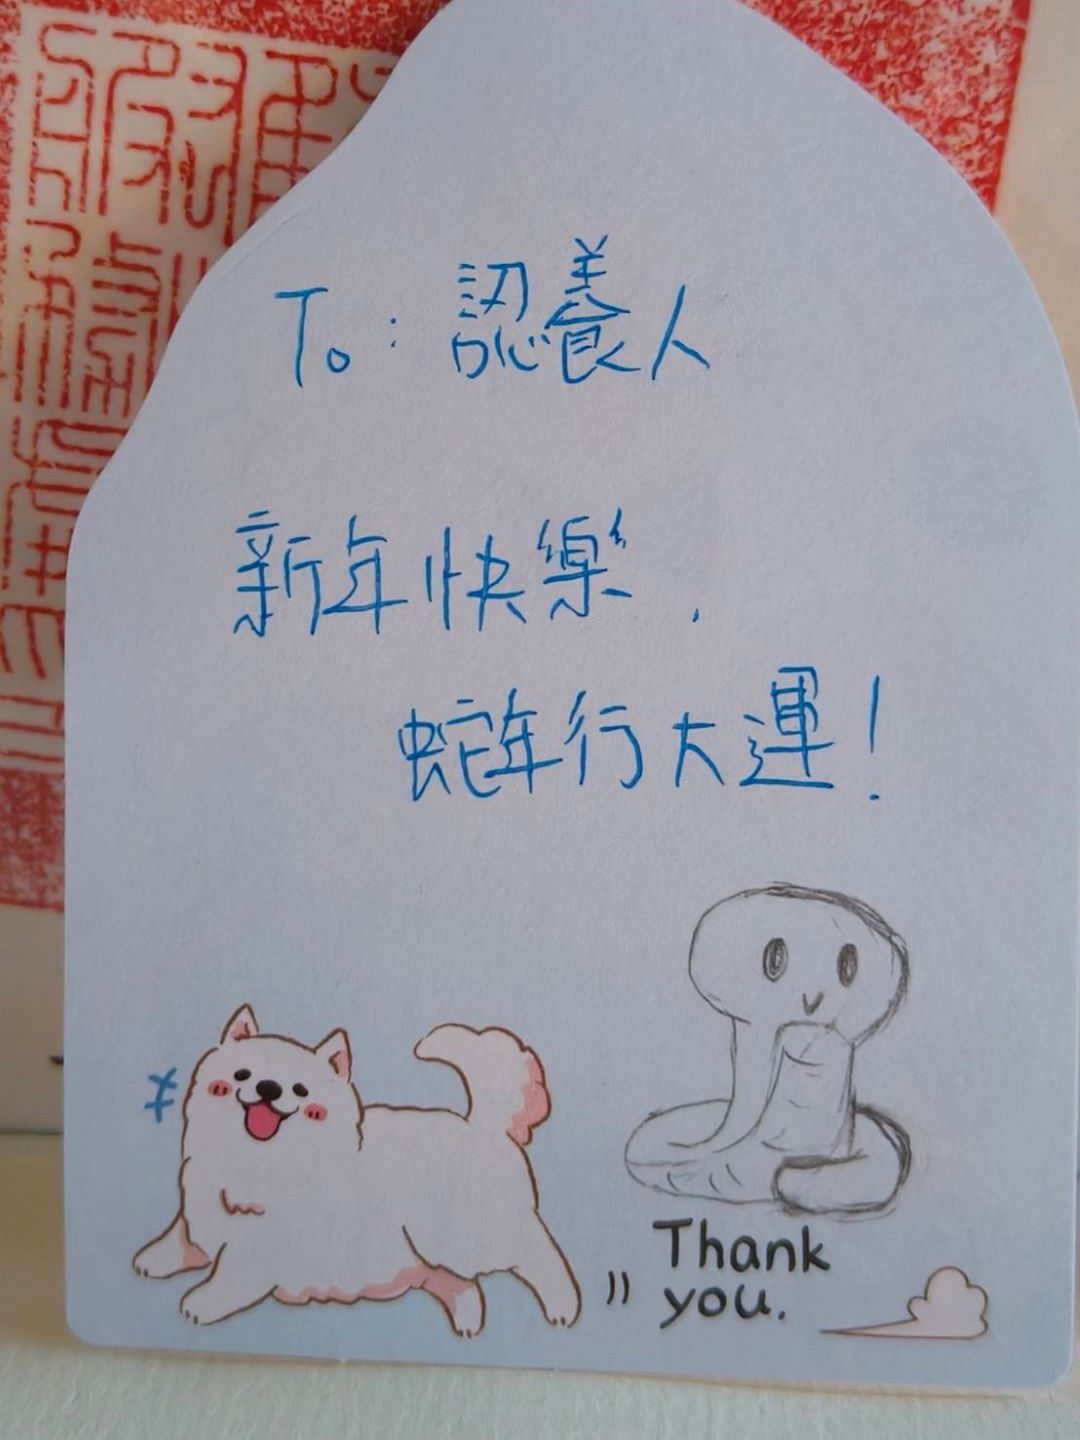 To: 認養人
新年快樂,
蛇年行大運!
Thank
you.